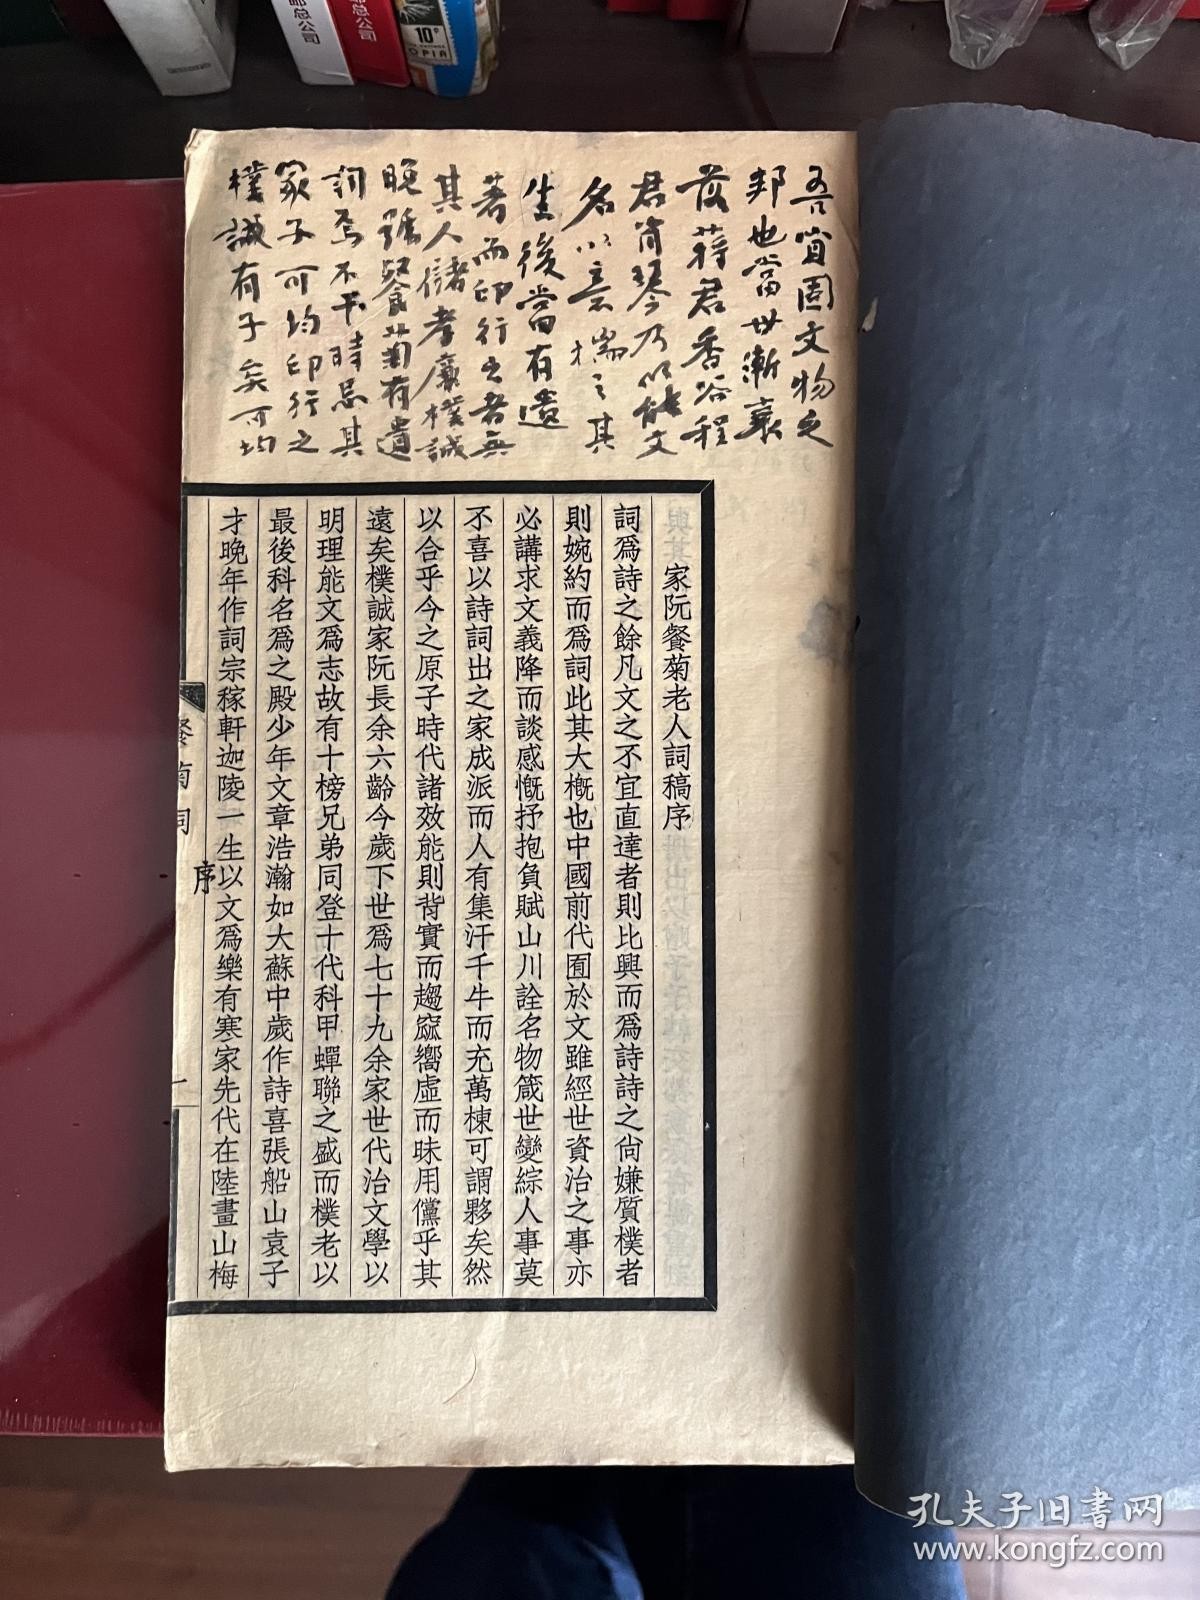 邮总公司
邮总公司
10°
OPIA
吾宜固文物之
邦也當世漸衰
落蔣君香谷程
君肖琴乃以能文
名以意揣之其
生後當有遺
著而印行之者無
其人儲孝廉樸誠
晚號餐菊有遺
詞焉不干時忌其
冢子可均印行之
樸誠有子矣可均
家阮餐菊老人詞稿序
詞爲詩之餘凡文之不宜直達者則比興而爲詩詩之尙嫌質樸者
則婉約而爲詞此其大槪也中國前代囿於文雖經世資治之事亦
必講求文義降而談感慨抒抱負賦山川詮名物箴世變綜人事莫
不喜以詩詞出之家成派而人有集汗千牛而充萬棟可謂夥矣然
以合乎今之原子時代諸效能則背實而趨窾嚮虛而昧用儻乎其
遠矣樸誠家阮長余六齡今歲下世爲七十九余家世代治文學以
明理能文爲志故有十榜兄弟同登十代科甲蟬聯之盛而樸老以
最後科名爲之殿少年文章浩瀚如大蘇中歲作詩喜張船山袁子
才晚年作詞宗稼軒迦陵一生以文爲樂有寒家先代在陸畫山梅
餐菊詞
序
一
孔夫子旧书网
www.kongfz.com